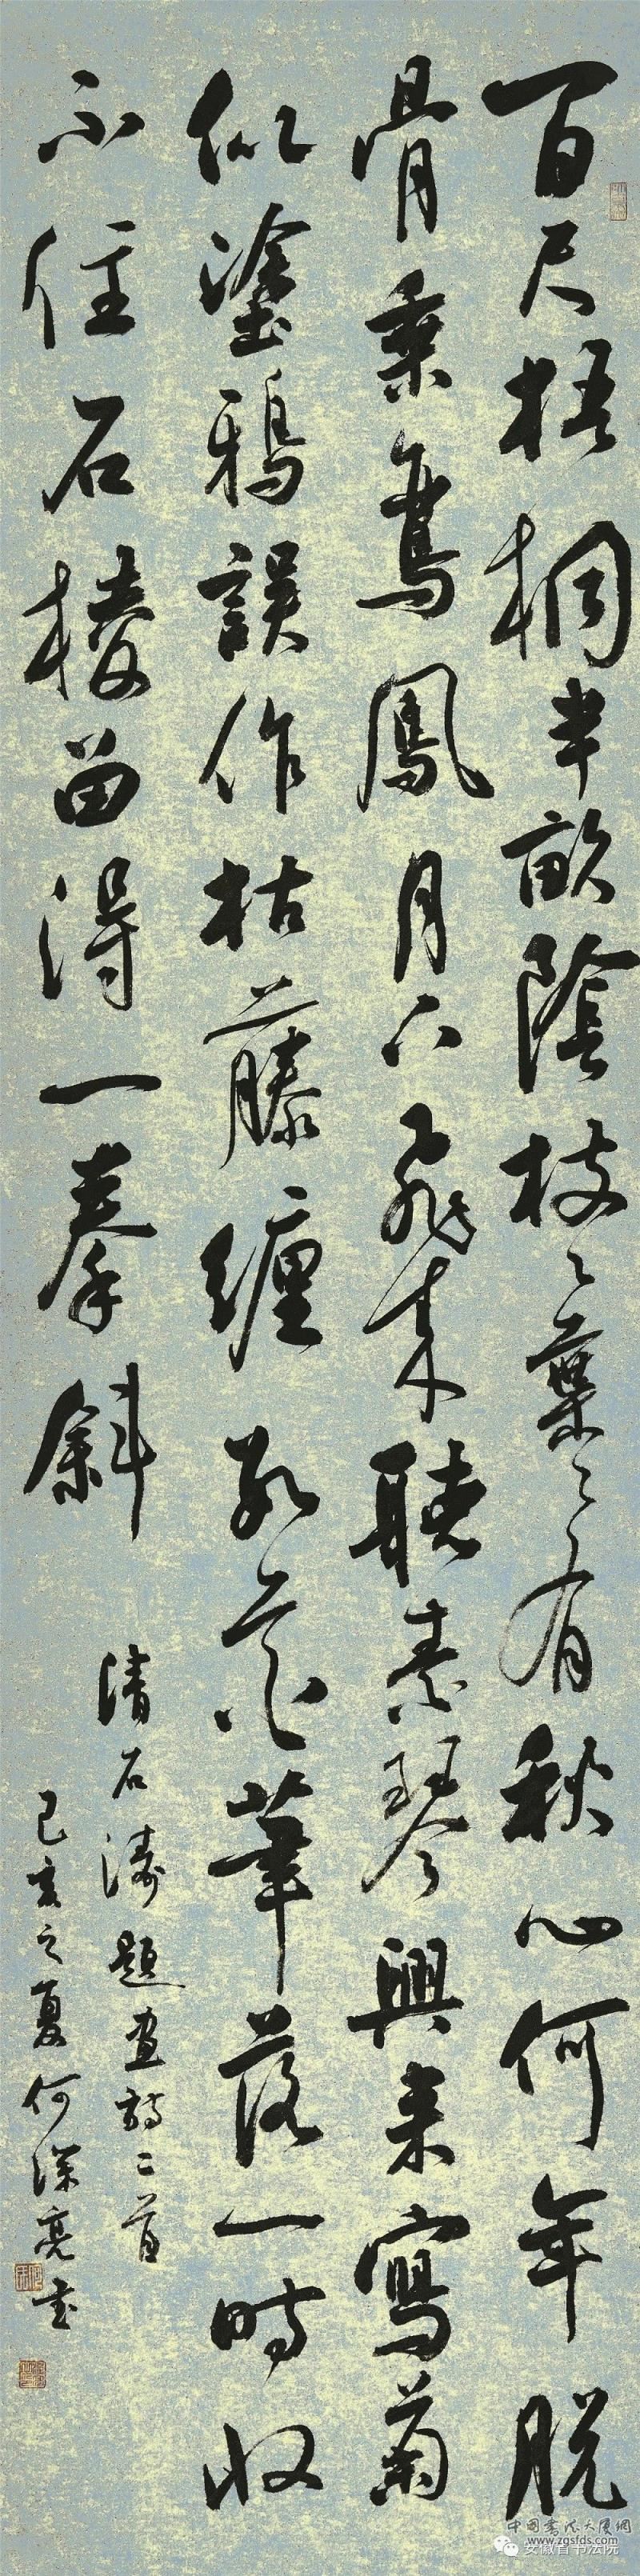 百尺梧桐半畝陰枝々葉々有秋心何年脫
骨乘鸞鳳月下飛來聽素琴興来寫菊
似塗鴉誤作枯藤纏數花筆落一時收
不住石棱留得一拳斜
清石濤題畫詩二首
己亥之夏何深亮书
中国书法大厦网
www.zgsfds.com
安徽省书法院